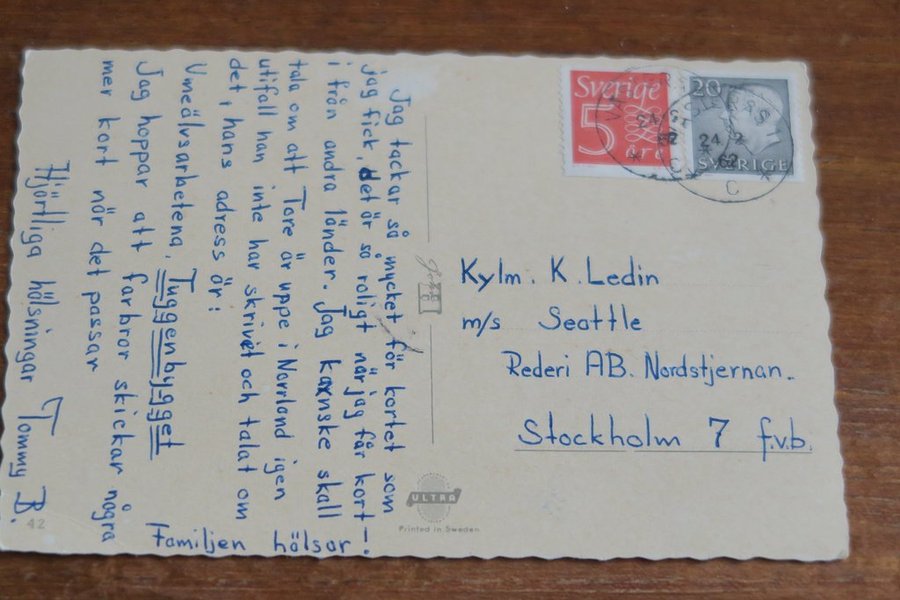 Jag tackar så mycket för kortet som
jag fick, det är så roligt när jag får kort
i från andra länder. Jag kanske skall
tala om att Tore är uppe i Norrland igen
utifall han inte har skrivit och talat om
det, hans adress är:
Umeälvsarbetena, Tuggenbygget
Jag hoppar att farbror skickar några
mer kort när det passar
Hjärtliga hälsningar Tommy B.
Familjen hälsar!
42
Sverige
5
öre
20
SVERIGE
24
62
C
Kylm. K. Ledin
m/s Seattle
Rederi AB. Nordstjernan.
Stockholm 7 f.v.b.
ULTRA
Printed in Sweden